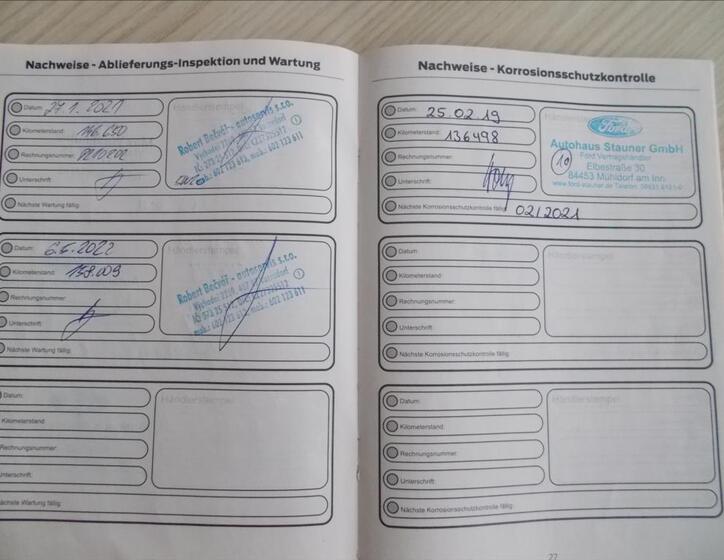 Nachweise - Ablieferungs-Inspektion und Wartung
Datum: 27.1.2021
Kilometerstand: 146.650
Rechnungsnummer:
Unterschrift:
Nächste Wartung fällig:
Robert Bečvář - autoservis s.r.o.
Datum: 6.5.2022
Kilometerstand: 158.009
Rechnungsnummer:
Unterschrift:
Nächste Wartung fällig:
Händlerstempel
Robert Bečvář - autoservis s.r.o.
mob.: 602 123 611
Datum:
Kilometerstand:
Rechnungsnummer:
Unterschrift:
Nächste Wartung fällig:
Händlerstempel
Nachweise - Korrosionsschutzkontrolle
Datum: 25.02.19
Kilometerstand: 136498
Rechnungsnummer:
Unterschrift:
Nächste Korrosionsschutzkontrolle fällig: 02/2021
Ford
Autohaus Stauner GmbH
Ford Vertragshändler
10 Elbestraße 30
84453 Mühldorf am Inn
Datum:
Kilometerstand:
Rechnungsnummer:
Unterschrift:
Nächste Korrosionsschutzkontrolle fällig:
Händlerstempel
Datum:
Kilometerstand:
Rechnungsnummer:
Unterschrift:
Nächste Korrosionsschutzkontrolle fällig:
Händlerstempel
27